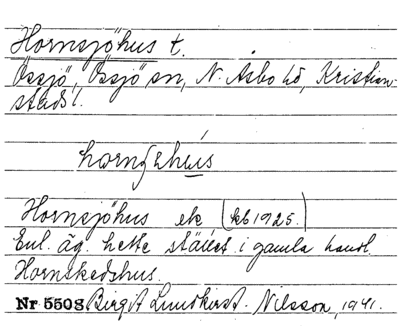 Hornsjöhus t.
Össjö, Össjö sn, N. Åsbo hd, Kristian-
stads l.
Hornsjöhus ek (kb 1925.)
Enl. äg. hette stället i gamla handl.
Hornskedshus.
Nr 5508 Birgit Lundkvist-Nilsson, 1941.